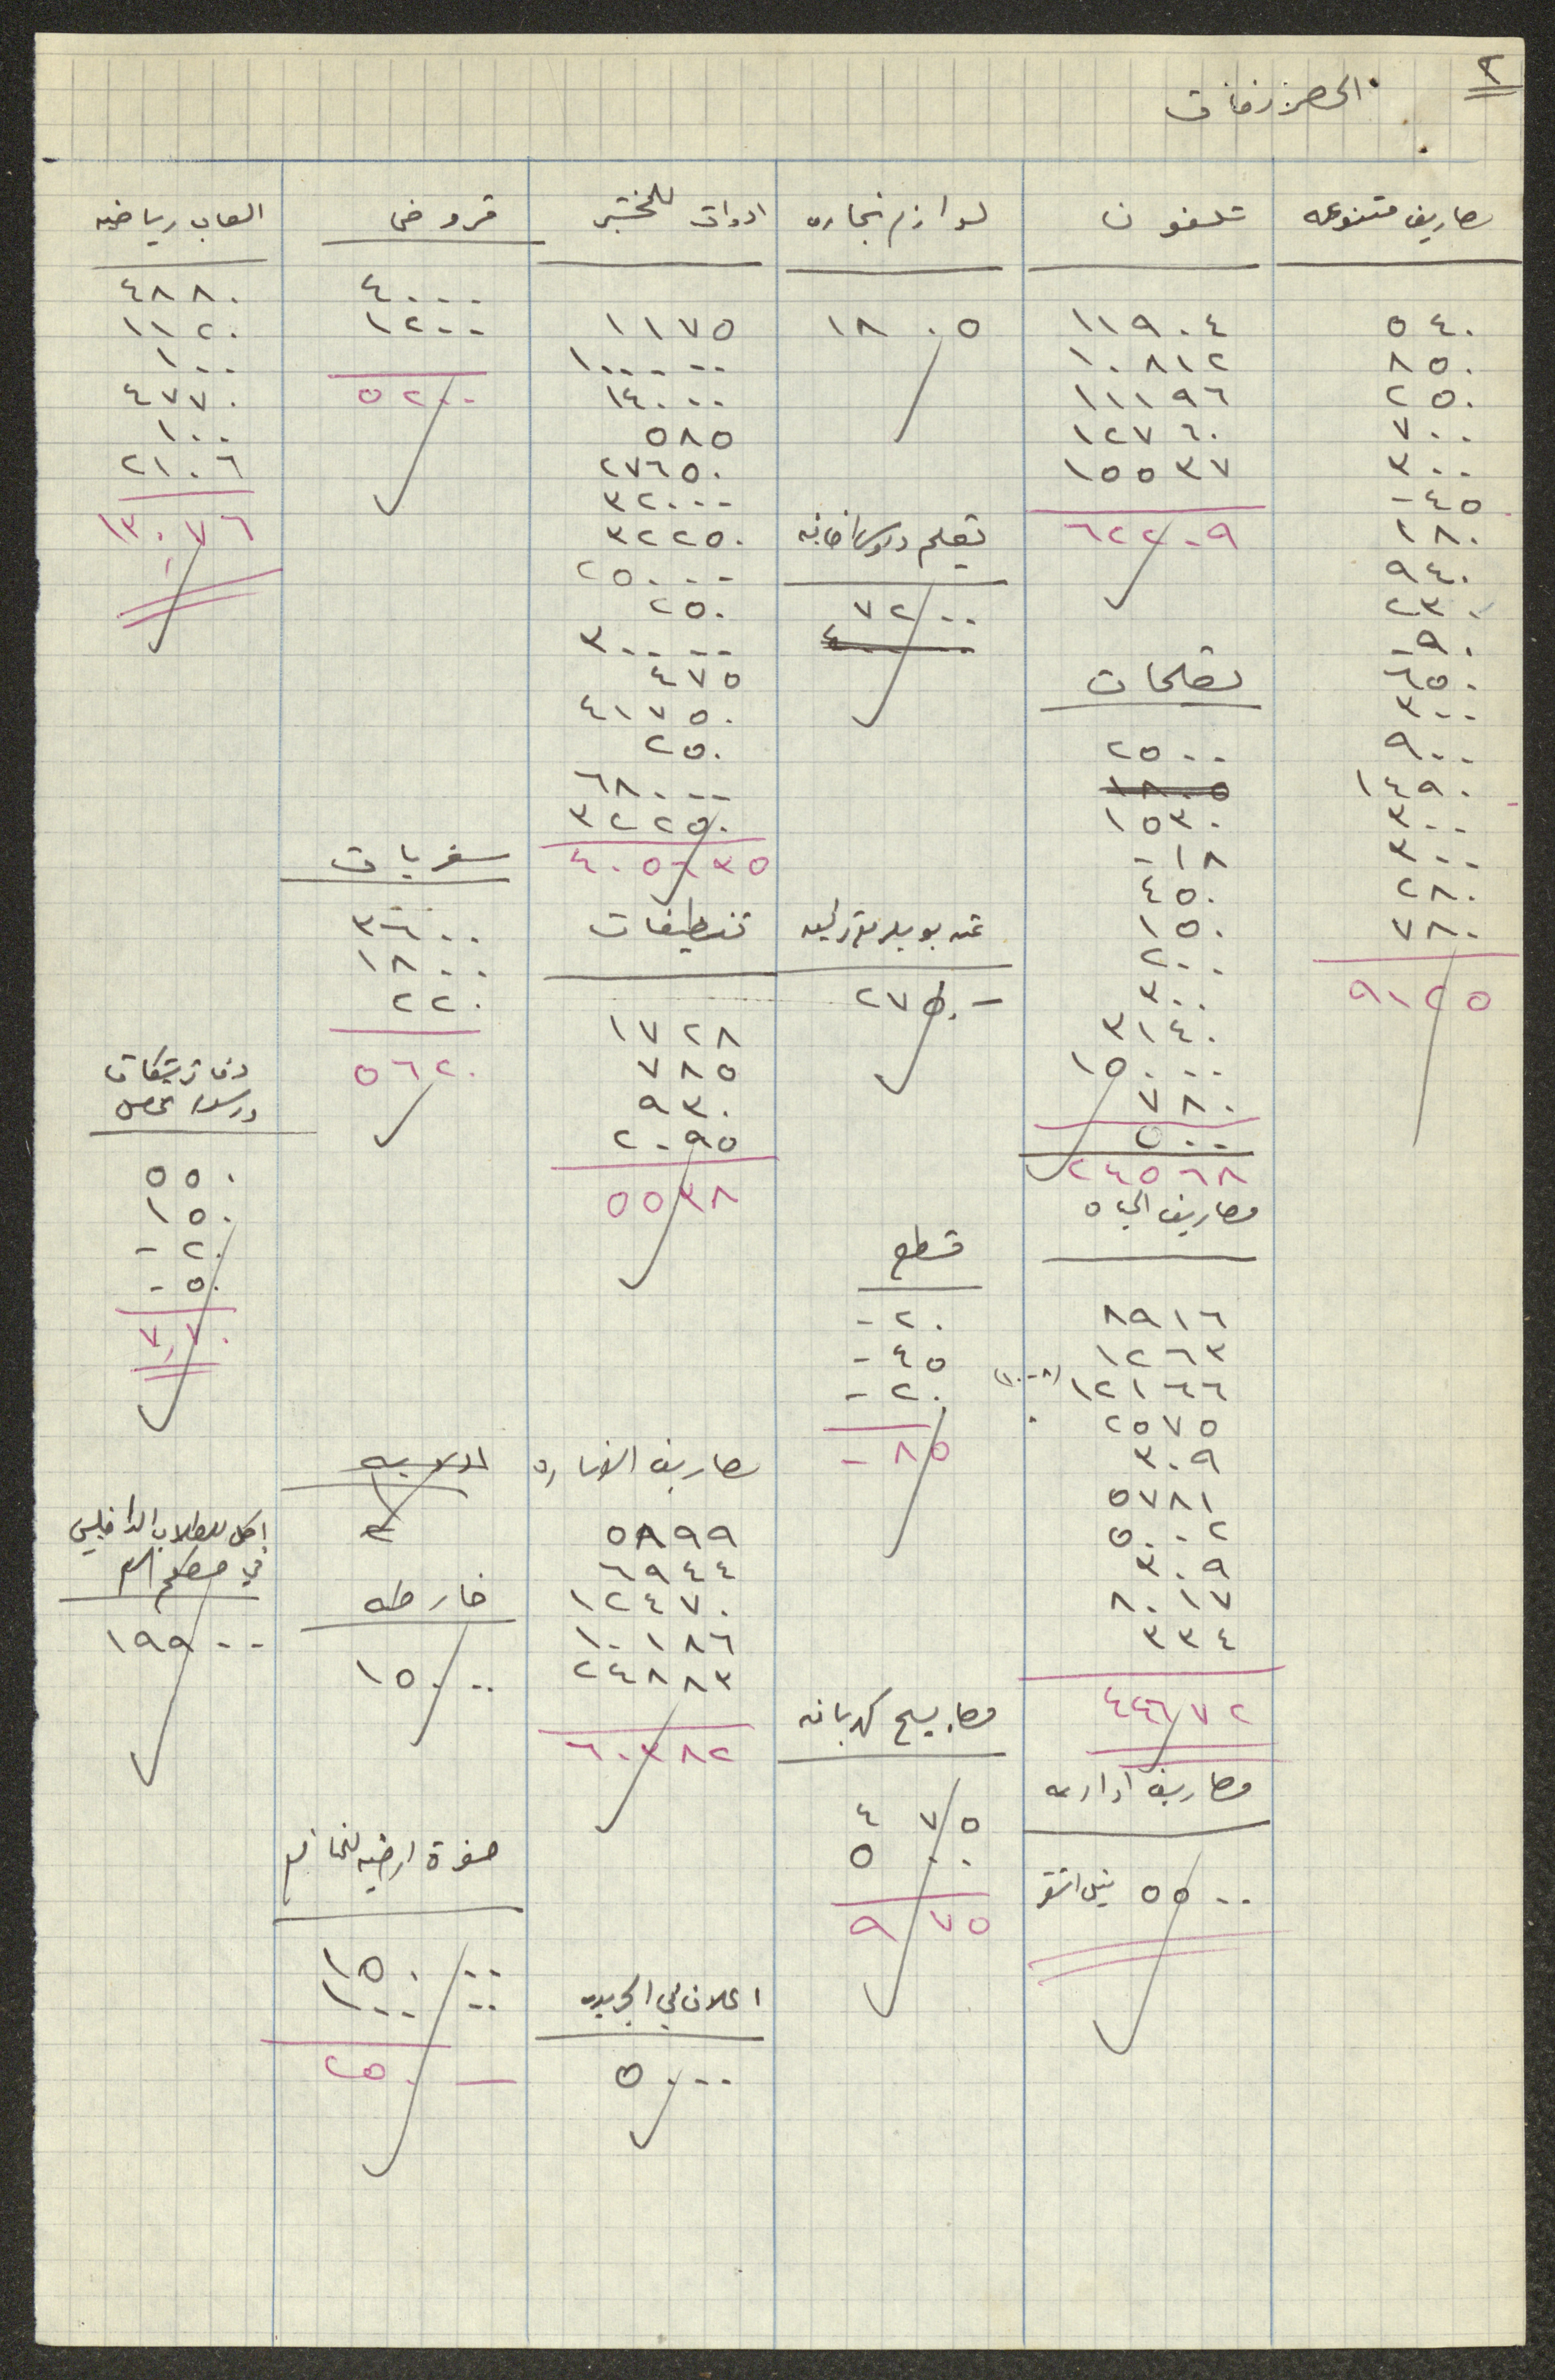 ٢
المصروفات
مصاريف متنوعه
٥٤٠
٨٥٠
٢٥٠
٧٠٠
٣٠٠
-٤٥
١٨٠
٩٤٠
٢٣٠
-٩٠
٦٥٠
٣٠٠
٩٠٠
١٤٩٠
٣٠٠
٣٠٠
٢٨٠
٧٨٠
٩١٢٥
تلفون
١١٩٠٤
١٠٨١٢
١١١٩٦
١٢٧٦٠
١٥٥٣٧
٦٢٢٠٩
تصليحات
٢٥٠٠
١٨٠٥
١٥٣٠
-١٨
٤٥٠
١٥٠
٢٠٠
٣٠٠
٣١٤٠
١٥٠٠٠
٧٨٠
٥٠٠
٢٤٥٦٨
مصاريف المياه
٨٩١٦
١٢٦٣
١٢١٦٦
٢٥٧٥
٣٠٩
٥٧٨١
٥٠٠٢
٣٠٩
٨٠١٧
٣٣٤
٤٤٦٧٢
مصاريف اداريه
٥٥٠٠
لوازم نجاره
١٨٠٥
تعليم دروس اضافيه
٧٢٠٠
٤٠٠٠
٢٧٥٠-
قطع
-٢٠
-٤٥
-٢٠
-٨٥
مصابيح كهربائيه
٤٧٥
٥٠٠
٩٧٥
ادوات للمختبر
١١٧٥
١٠٠٠٠٠
١٤٠٠٠
٥٨٥
٢٧٦٥٠
٣٢٠٠٠
٣٢٢٥٠
٢٥٠٠٠
٢٥٠
٣٠٠٠٠
٤٧٥
٤١٧٥٠
٢٥٠
٦٨٠٠٠
٣٢٢٥٠
٤٠٥٦٣٥
تنظيفات
١٧٢٨
٧٨٥
٩٣٠
٢٠٩٥
٥٥٣٨
مصاريف
٥٨٩٩
٦٩٤٤
١٢٤٧٠
١٠١٨٦
٢٤٨٨٣
٦٠٣٨٢
اعلان في الجريده
٥٠٠٠
قروض
٤٠٠٠
١٢٠٠
٥٢٠٠
سفريات
٣٦٠٠
١٨٠٠
٢٢٠
٥٦٢٠
خارطه
١٥٠٠٠
١٥٠٠٠
١٠٠٠٠
٢٥٠—
العاب رياضيه
٤٨٨٠
١١٢٠
١٠٠
٤٧٧٠
١٠٠
٢١٠٦
١٣٠٧٦
٥٥٠
١٥٠
-٢٠
-٥٠
٧٧٠
اكل للطلاب الداخليين
في
١٩٩٠٠